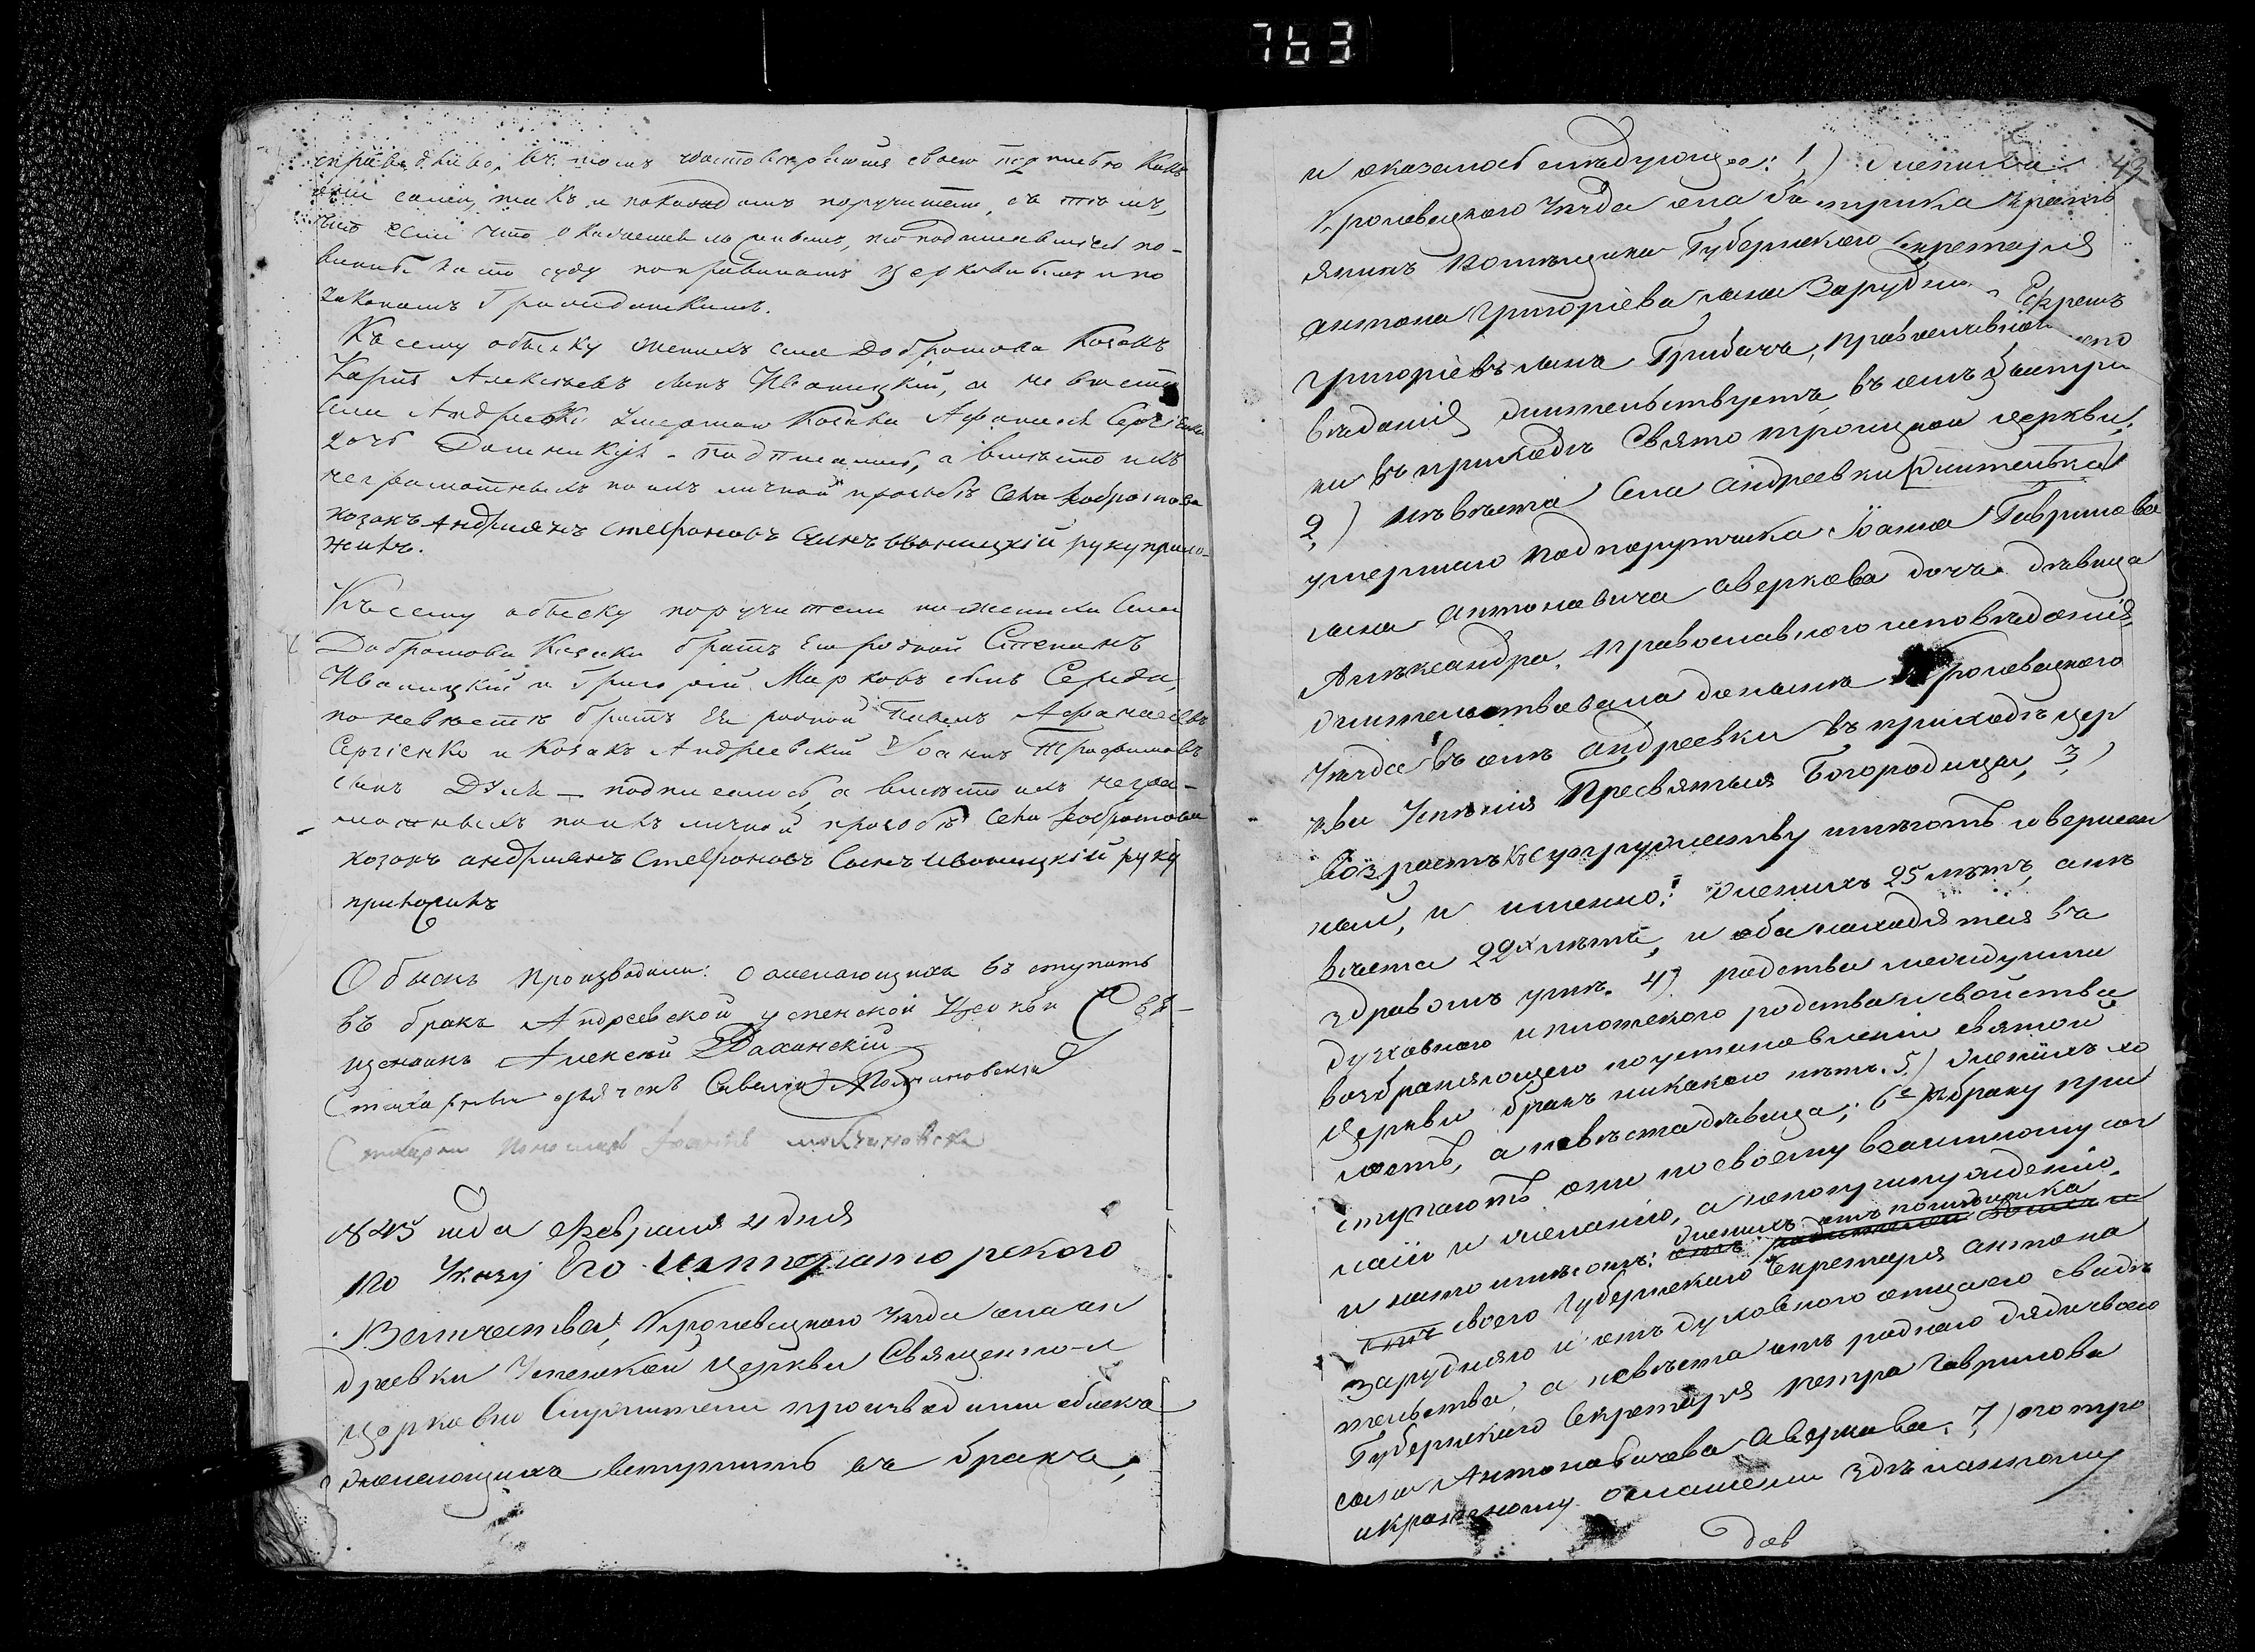 763
справедливо, въ томъ удостоверяемъ своею подписью какъ
они сами, такъ и по каждомъ поручители, съ тѣмъ,
что если что окажется ложнымъ, то подписавшіеся по-
винны за то суду по правиламъ церковнымъ и по
законамъ Гражданскимъ.
Къ сему обыску женихъ села Добротова Козакъ
Карпъ Алексѣевъ сынъ Иваницкій, а невѣста
села Андреевки умершаго Козака Афанасія Сергіенка
дочь Домникія - подписались, а вмѣсто ихъ
неграмотныхъ по ихъ личной прозьбѣ села Добротова
козакъ Андріянъ Стефановъ сынъ Иваницкій руку прило-
жилъ.
Къ сему обыску поручители по женихѣ села
Добротова Козаки братъ Его родной Степанъ
Иваницкій и Григорій Марковъ сынъ Середа,
по невѣстѣ братъ Ея родной Павелъ Афанасіевъ
Сергіенко и Козакъ Андреевскій Іоаннъ Трофимовъ
сынъ - подписались, а вмѣсто ихъ негра-
мотныхъ по ихъ личной прозьбѣ села Добротова
козакъ Андріянъ Стефановъ сынъ Иваницкій руку
приложилъ
Обыскъ производили: о желающихъ вступить
въ бракъ Андреевской Успенской Церкви Свя-
щенникъ Алексѣй
Стихарный дьячекъ Савелій
Стихарный пономарь Іоаннъ
1845 года Февраля 4 дня
По Указу Его Императорского
Величества, Кролевецкого Уезда села Ан
дреевки Успенской церкви Священно-и
церковно Служители производили обыскъ
о желающихъ вступить въ бракъ,
49
и оказалось слѣдующее: 1) Женихъ
Кролевецкого Уезда села Быстрика крестъ
янинъ Помѣщика Губернского Секретаря
Антона Григоріева сына Зарудня Ефремъ
Григоріевъ сынъ Грибачъ, православного испо
вѣданія жительствуетъ въ селѣ Быстри
ки въ приходѣ Свято Троицкой церкви,
2) невѣста села Андреевки жителька
умершаго Подпорутчика Іоанна Гаврилова
сына Антоновича Аверкова дочь девица
Алѣксандра, православного исповѣданія
жительствовала доныне Кролевецкого
Уезда въ селѣ Андреевки въ приходѣ цер
кви Успѣнія Пресвятыя Богородицы, 3)
Возрастъ къ супружеству имѣютъ совершен
ной, и именно: женихъ 25 лѣтъ, а не
вѣста 22х лѣтъ, и оба находятся въ
здравомъ уме. 4) родства между ими
духовного и плотского родства и свойства
возбраняющего по установленіи святой
церкви бракъ никакого нѣтъ. 5) Женихъ хо
лостъ, а невѣста дѣвица; 6е къ браку при
ступаютъ они по своему взаимному согла
сію и желанію, а не по принужденію,
и на то имѣютъ: женихъ отъ помѣщика
своего Губернского Секретаря Антона
Зарудняго и отъ духовного отца его свидѣ
тельства, а невѣста отъ роднаго дяди своего
Губернского Секретаря Петра Гаврилова
сына Антоновичева Аверкова. 7) по тро
екратному оглашеніи здѣланному